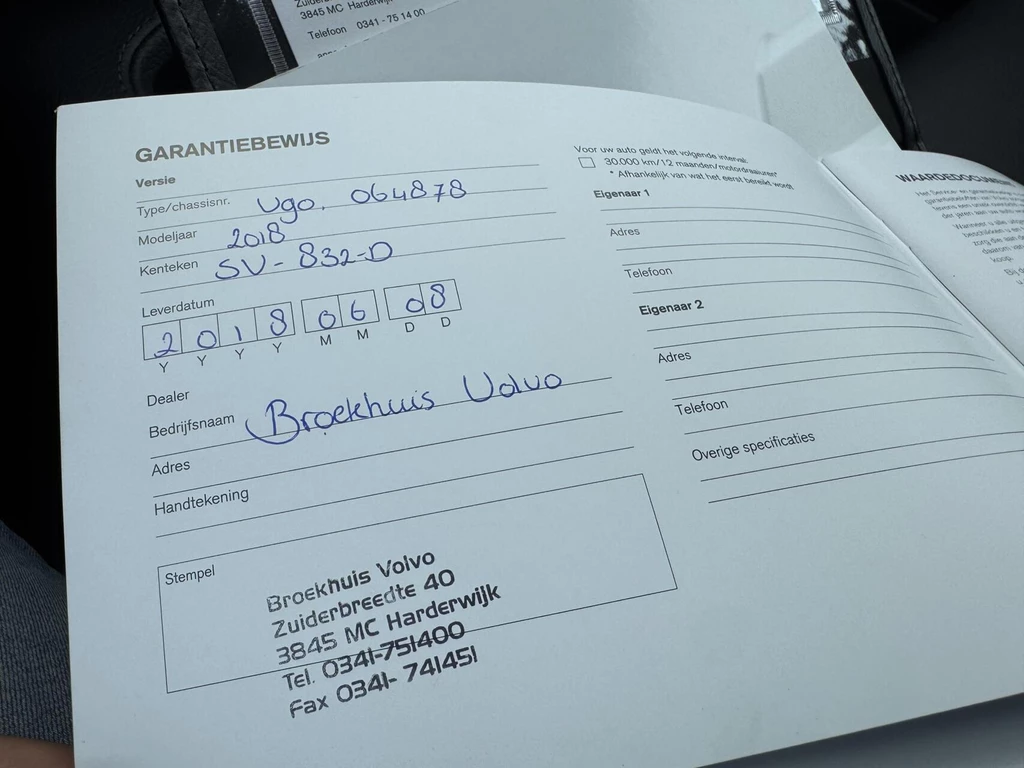 3845 MC Harderwijk
Telefoon 0341 - 75 14 00
GARANTIEBEWIJS
Versie
Type/chassisnr. Vgo. 064878
Modeljaar 2018
Kenteken SV-832-D
Leverdatum
2018 06 08
Y Y Y Y M M D D
Dealer
Bedrijfsnaam Broekhuis Volvo
Adres
Handtekening
Stempel
Broekhuis Volvo
Zuiderbreedte 40
3845 MC Harderwijk
Tel. 0341-751400
Fax 0341- 741451
Voor uw auto geldt het volgende interval:
30.000 km/12 maanden/motordraaiuren*
* Afhankelijk van wat het eerst bereikt wordt
Eigenaar 1
Adres
Telefoon
Eigenaar 2
Adres
Telefoon
Overige specificaties